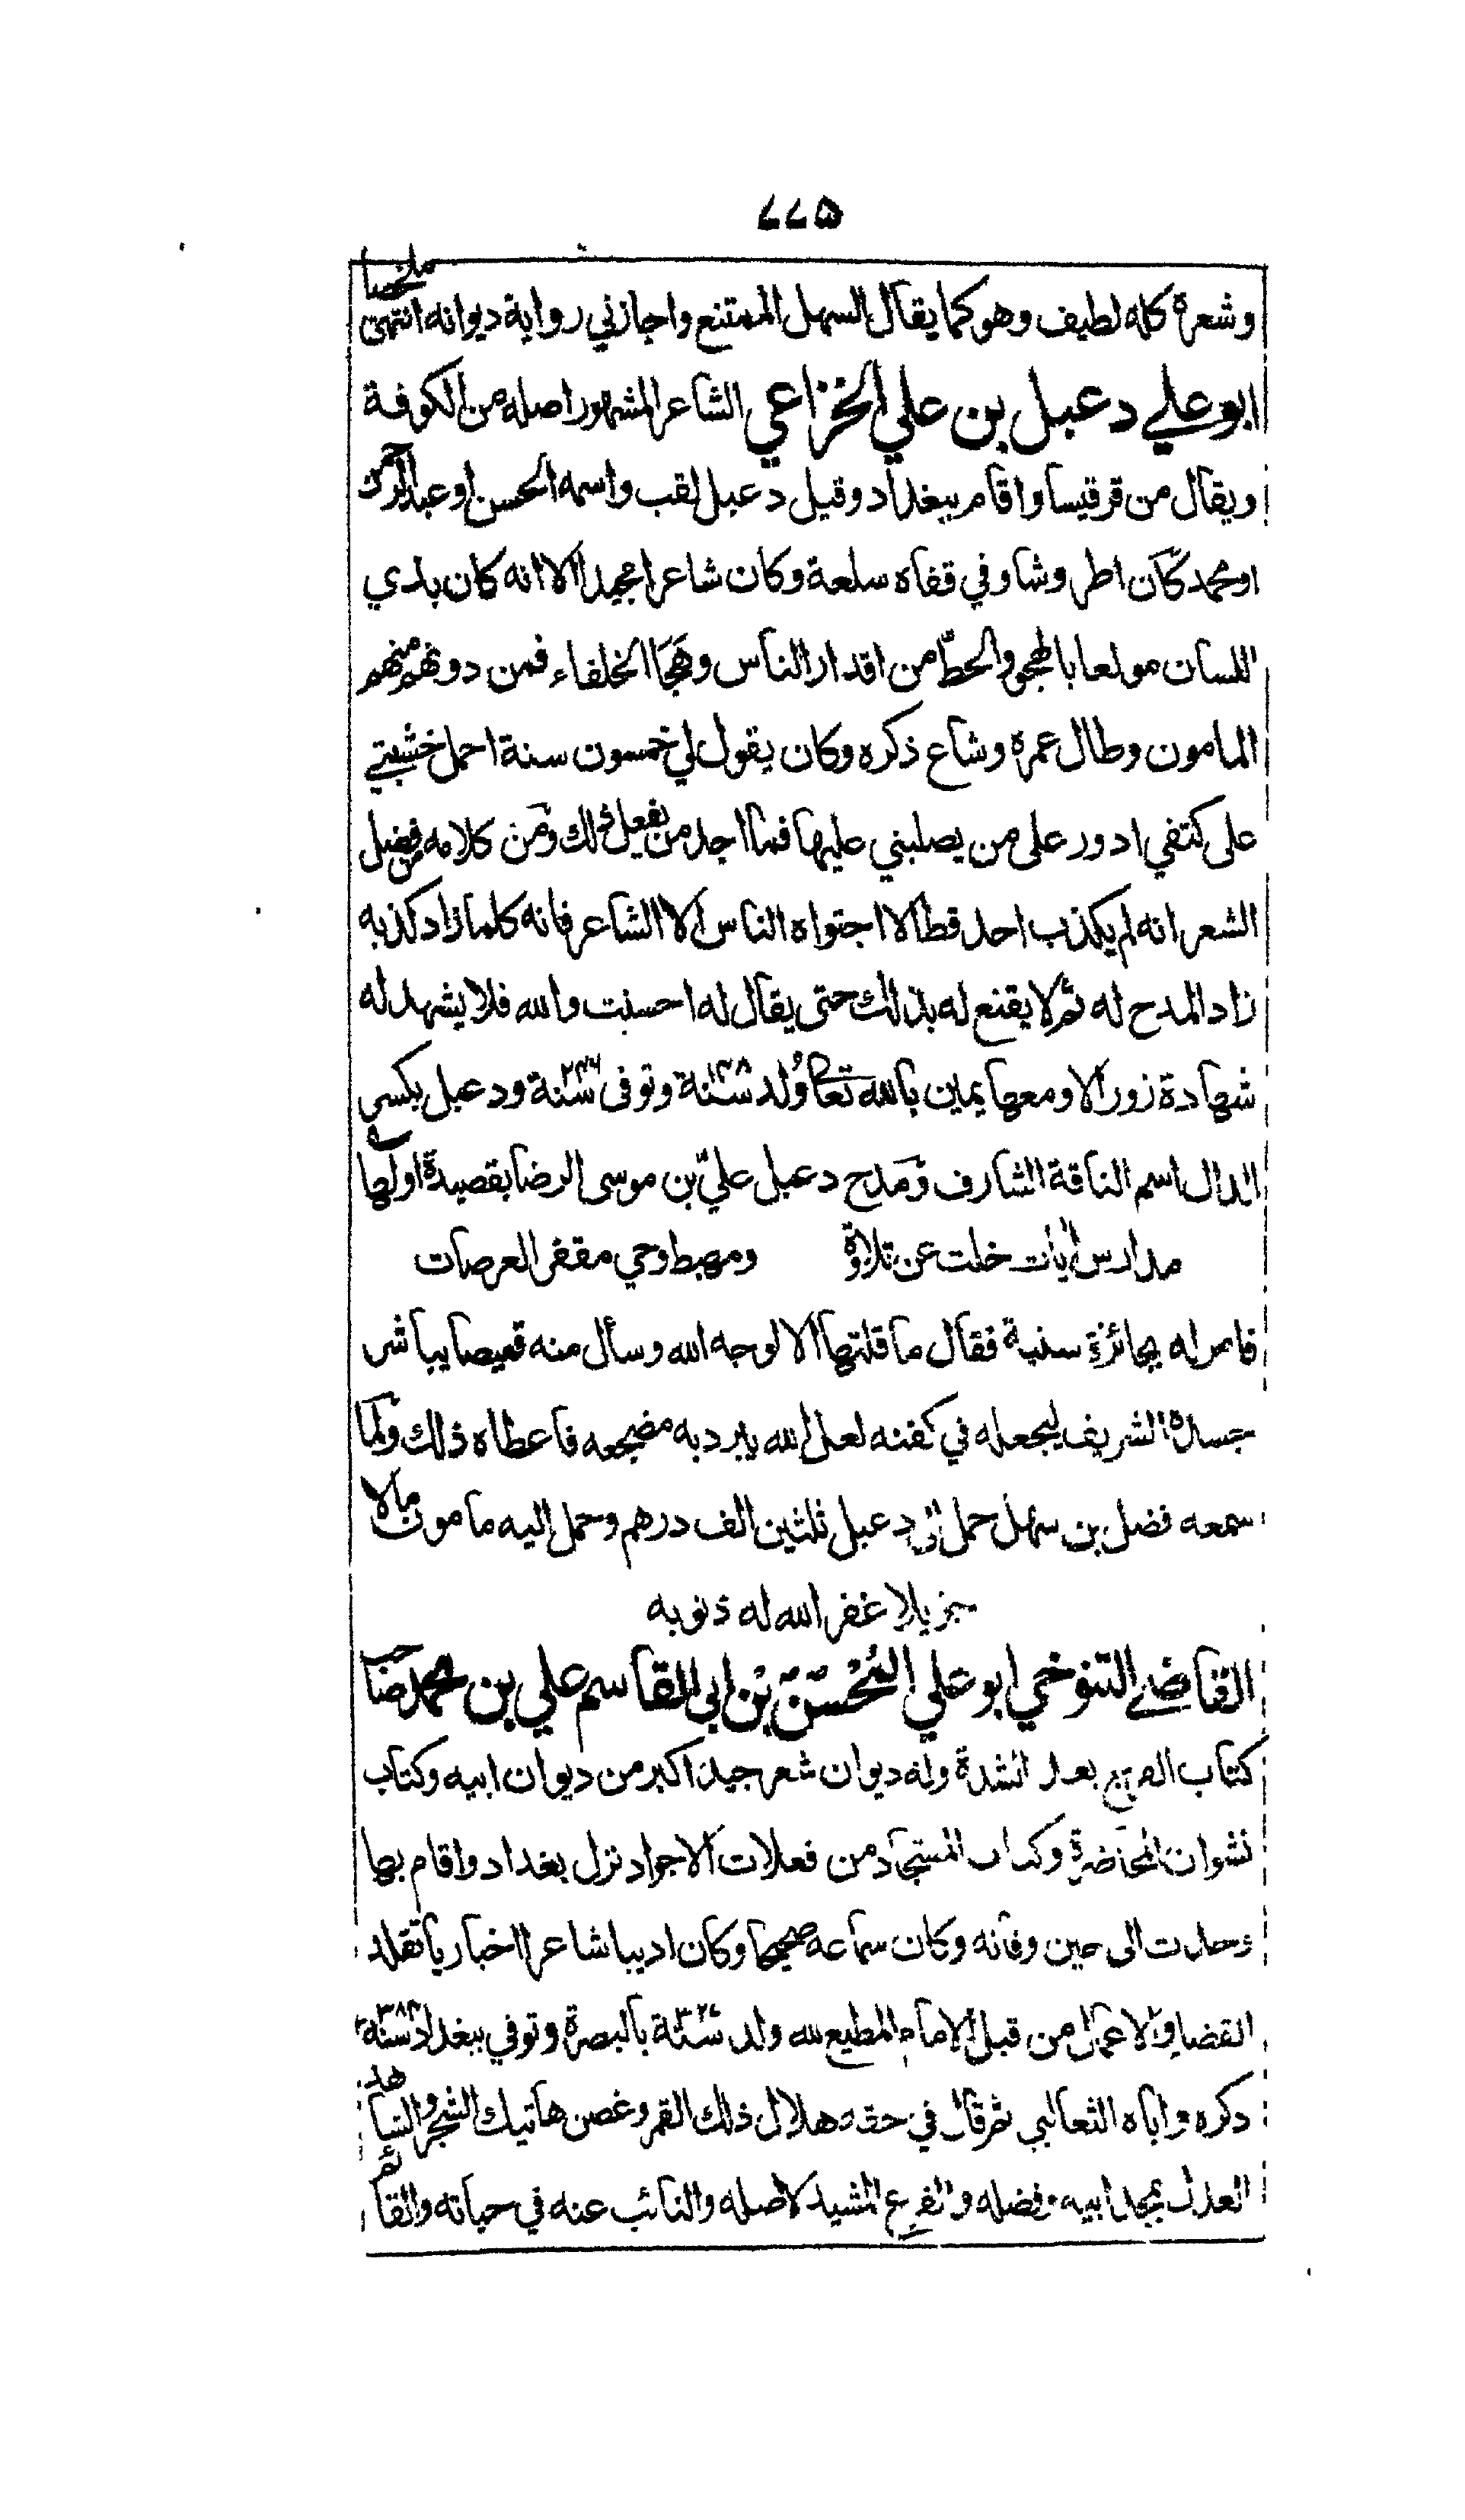 ۶۶۵
وشعره كله لطيف وهو كما يقال السهل الممتنع واجازني رواية ديوانه انتهى ملخصا
ابو علي دعبل بن علي الخزاعي الشاعر المشهور اصله من الكوفة
ويقال من قرقيسا واقام ببغداد وقيل دعبل لقب واسمه الحسن او عبد الرحمن
او محمد كان اطروشا وفي قفاه سلعة وكان شاعرا مجيدا الا انه كان بذي
اللسان مولعا بالهجو والحطّ من اقدار الناس وهَجَا الخلفاء فمن دونهم منهم
المامون وطال عمره وشاع ذكره وكان يقول لي خمسون سنة احمل خشبتي
على كتفي ادور على من يصلبني عليها فما اجد من يفعل ذلك ومن كلامه من فضل
الشعر انه لم يكذب احد قط الا اجتواه الناس الا الشاعر فانه كلما زاد كذبه
زاد المدح له ثم لا يقنع له بذلك حتى يقال له احسنت والله فلا يشهد له
شهادة زور الا ومعها يمين بالله تعا وُلد سنة ١٤٨ وتوفى سنة ٢٤٦ ودعبل بكسر
الدال اسم الناقة الشارف ومَدح دعبل عليّ بن موسى الرضا بقصيدة اولها
مدارس آيات خلت عن تلاوة ومهبط وحي مقفر العرصات
فامر له بجائزة سنية فقال ما قلتها الا لوجه الله وسأل منه قميصا يباشر
جسده الشريف ليجعله في كفنه لعل الله يبرد به مضجعه فاعطاه ذلك ولما
سمعه فضل بن سهل حمل الى دعبل ثلثين الف درهم وحمل اليه مامون مالا
جزيلا غفر الله له ذنوبه
القاضي التنوخي ابو علي المُحَسِّنْ بْن ابي القاسم علي بن محمد صاحب
كتاب الفرج بعد الشدة وله ديوان شعر جيد اكبر من ديوان ابيه وكتاب
نشوان المحاضرة وكتاب المستجاد من فعلات الاجواد نزل بغداد واقام بها
وحدث الى حين وفاته وكان سماعه صحيحا وكان اديبا شاعرا اخباريا تقلد
القضا والاعمال من قبل الامام المطيع لله ولد سنة بالبصرة وتوفي ببغداد سنة ٣٨٤
ذكره واباه الثعالبي ثم قال في حقه هلال ذلك القمر وغصن هاتيك الشجر والشاهد
العدل بمجد ابيه وفضله والفرع المشيد لاصله والنائب عنه في حياته والقائم